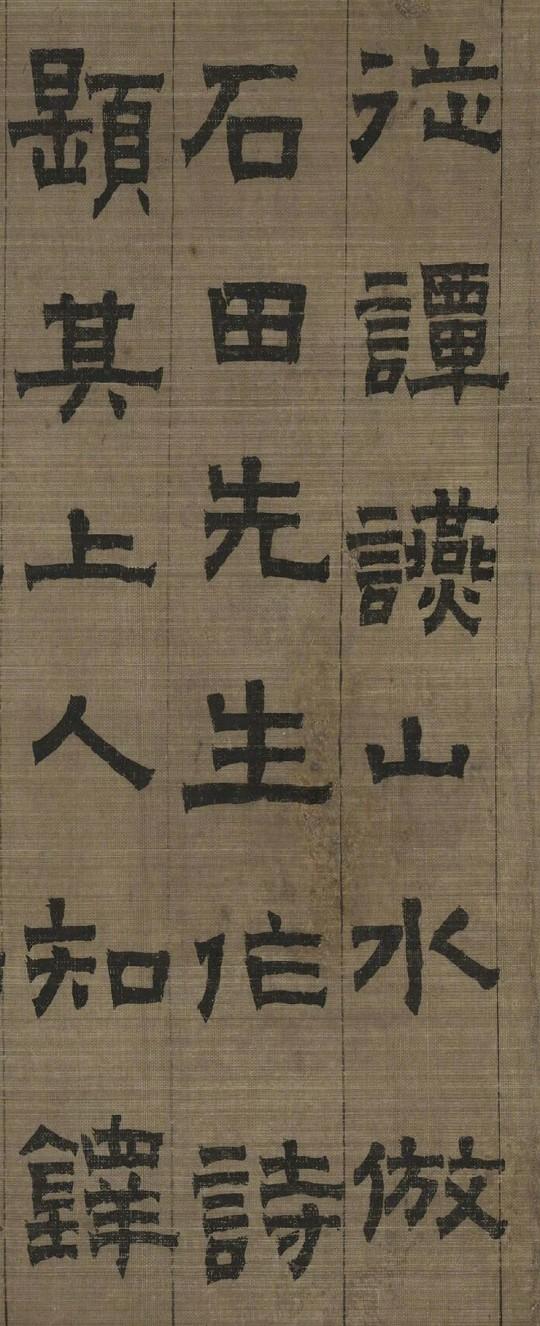 從譚讌山水倣
石田先生作詩
題其上人知鐸